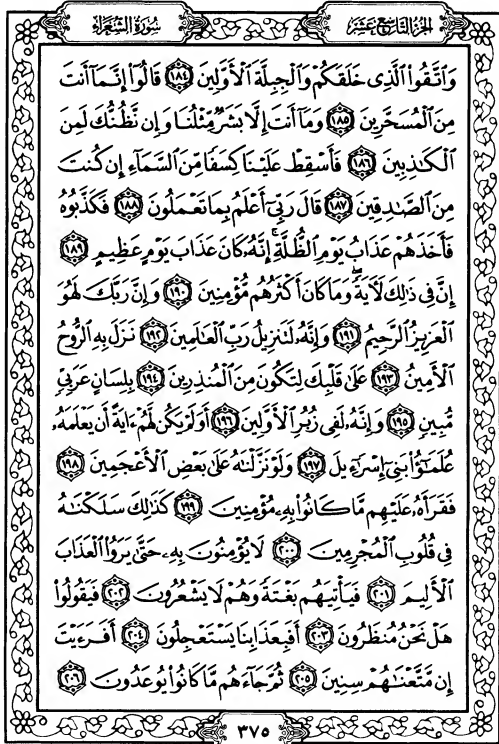 سُورَةُ الشُّعَرَاءِ
الجُزْءُ التَّاسِعَ عَشَرَ
وَاتَّقُوا۟ الَّذِى خَلَقَكُمْ وَالْجِبِلَّةَ الْأَوَّلِينَ ١٨٤ قَالُوٓا۟ إِنَّمَآ أَنتَ
مِنَ الْمُسَحَّرِينَ ١٨٥ وَمَآ أَنتَ إِلَّا بَشَرٌ مِّثْلُنَا وَإِن نَّظُنُّكَ لَمِنَ
الْكَـٰذِبِينَ ١٨٦ فَأَسْقِطْ عَلَيْنَا كِسَفًا مِّنَ السَّمَآءِ إِن كُنتَ
مِنَ الصَّـٰدِقِينَ ١٨٧ قَالَ رَبِّىٓ أَعْلَمُ بِمَا تَعْمَلُونَ ١٨٨ فَكَذَّبُوهُ
فَأَخَذَهُمْ عَذَابُ يَوْمِ الظُّلَّةِ ۚ إِنَّهُۥ كَانَ عَذَابَ يَوْمٍ عَظِيمٍ ١٨٩
إِنَّ فِى ذَٰلِكَ لَـَٔايَةً ۖ وَمَا كَانَ أَكْثَرُهُم مُّؤْمِنِينَ ١٩٠ وَإِنَّ رَبَّكَ لَهُوَ
الْعَزِيزُ الرَّحِيمُ ١٩١ وَإِنَّهُۥ لَتَنزِيلُ رَبِّ الْعَـٰلَمِينَ ١٩٢ نَزَلَ بِهِ الرُّوحُ
الْأَمِينُ ١٩٣ عَلَىٰ قَلْبِكَ لِتَكُونَ مِنَ الْمُنذِرِينَ ١٩٤ بِلِسَانٍ عَرَبِىٍّ
مُّبِينٍ ١٩٥ وَإِنَّهُۥ لَفِى زُبُرِ الْأَوَّلِينَ ١٩٦ أَوَلَمْ يَكُن لَّهُمْ ءَايَةً أَن يَعْلَمَهُۥ
عُلَمَـٰٓؤُا۟ بَنِىٓ إِسْرَٰٓءِيلَ ١٩٧ وَلَوْ نَزَّلْنَـٰهُ عَلَىٰ بَعْضِ الْأَعْجَمِينَ ١٩٨
فَقَرَأَهُۥ عَلَيْهِم مَّا كَانُوا۟ بِهِۦ مُؤْمِنِينَ ١٩٩ كَذَٰلِكَ سَلَكْنَـٰهُ
فِى قُلُوبِ الْمُجْرِمِينَ ٢٠٠ لَا يُؤْمِنُونَ بِهِۦ حَتَّىٰ يَرَوُا۟ الْعَذَابَ
الْأَلِيمَ ٢٠١ فَيَأْتِيَهُم بَغْتَةً وَهُمْ لَا يَشْعُرُونَ ٢٠٢ فَيَقُولُوا۟
هَلْ نَحْنُ مُنظَرُونَ ٢٠٣ أَفَبِعَذَابِنَا يَسْتَعْجِلُونَ ٢٠٤ أَفَرَءَيْتَ
إِن مَّتَّعْنَـٰهُمْ سِنِينَ ٢٠٥ ثُمَّ جَآءَهُم مَّا كَانُوا۟ يُوعَدُونَ ٢٠٦
٣٧٥